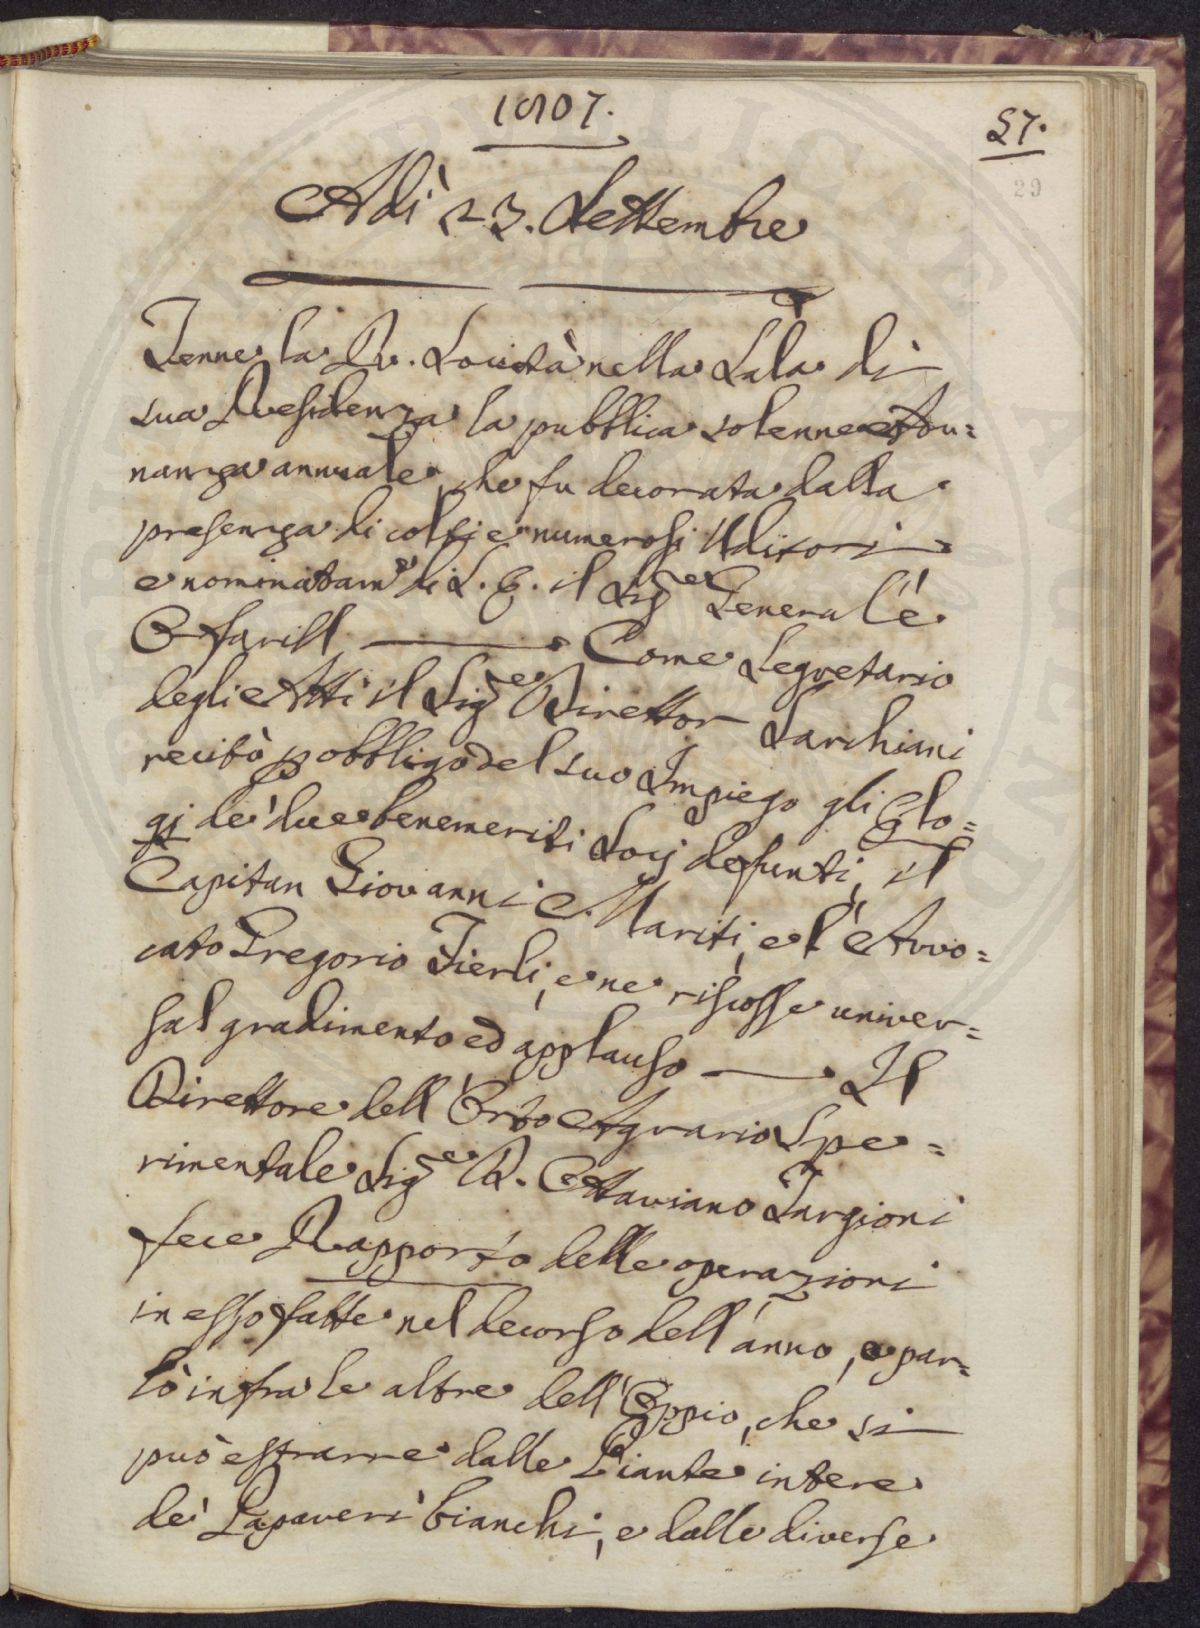 1807.
27.
29
Adì 23. Settembre
Tenne la R. Società nella Sala di
sua Residenza la pubblica solenne Adu=
nanza annuale, che fu decorata dalla
presenza di colti e numerosi Uditori
e nominatam.e di S. E. il Sig.e General'e
Ofarill ——— Come Segretario
degli Atti il Sig.e Direttor Sarchiani
recitò p obbligo del suo Impiego gli Elo=
gj de' due benemeriti Socj defunti, il
Capitan Giovanni Mariti, e l'Avvo=
cato Gregorio Fierli, e ne riscosse univer=
sal gradimento ed applauso ——— Il
Direttore dell'Orto Agrario Spe=
rimentale Sig.e D. Ottaviano Targioni
fece Rapporto delle operazioni
in esso fatte nel decorso dell'anno, e par=
lò infra le altre dell'Oppio, che si
può estrarre dalle Piante intere
de' Papaveri bianchi, e dalle diverse